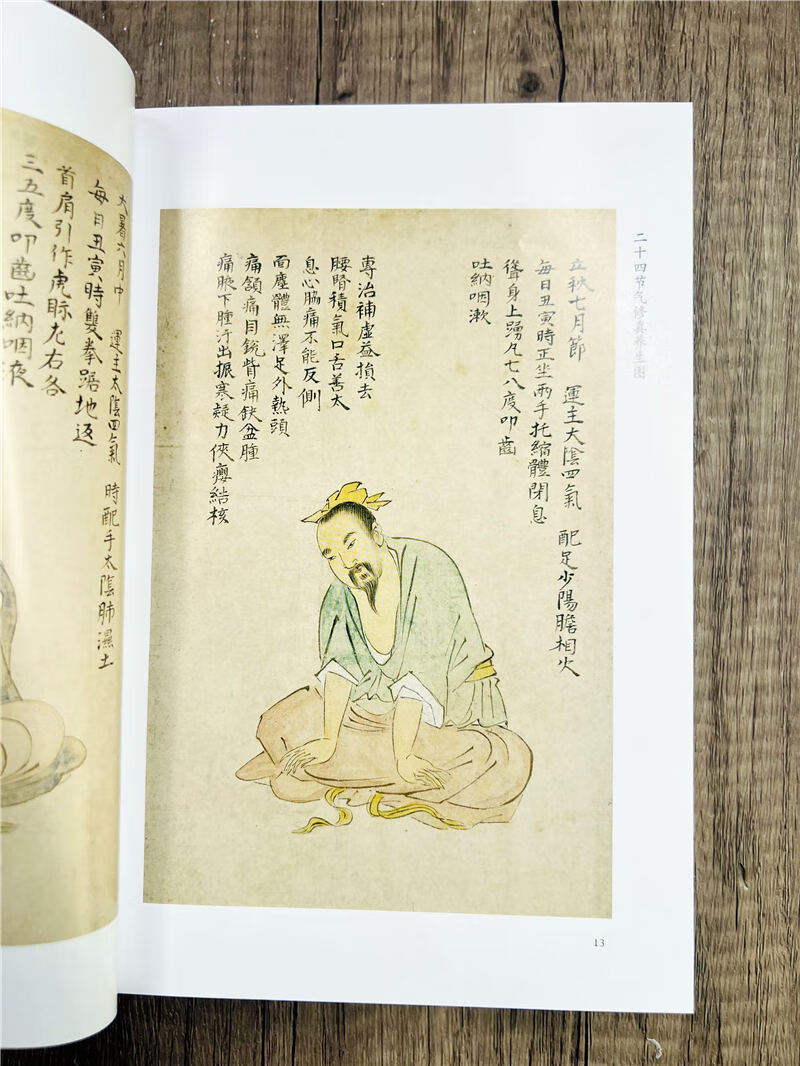 大暑六月中 運主太陰四氣 時配手太陰肺濕土
每日丑寅時雙拳踞地返
首肩引作虎眎左右各
三五度叩齒吐納咽液
二十四节气修真养生图
立秋七月節 運主大陰四氣 配足少陽膽相火
每日丑寅時正坐兩手托縮體閉息
聳身上踴凡七八度叩齒
吐納咽漱
專治補虛益損去
腰腎積氣口舌善太
息心脇痛不能反側
面塵體無澤足外熱頭
痛頷痛目銳眥痛缺盆腫
痛腋下腫汗出振寒疑力俠癭結核
13